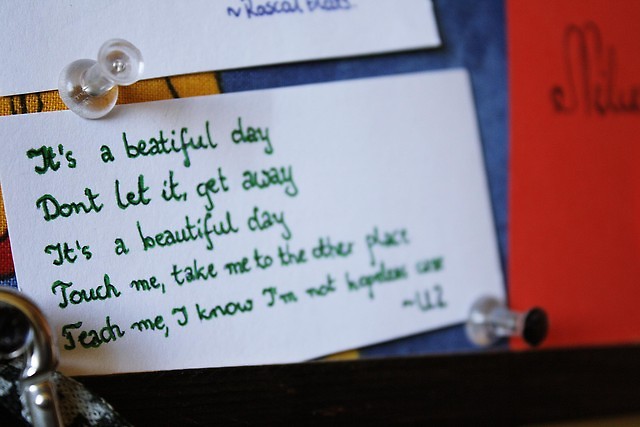 ~Rascal Flatts
It's a beatiful day
Dont let it, get away
It's a beautiful day
Touch me, take me to the other place
Teach me, I know I'm not hopeless case
~U2